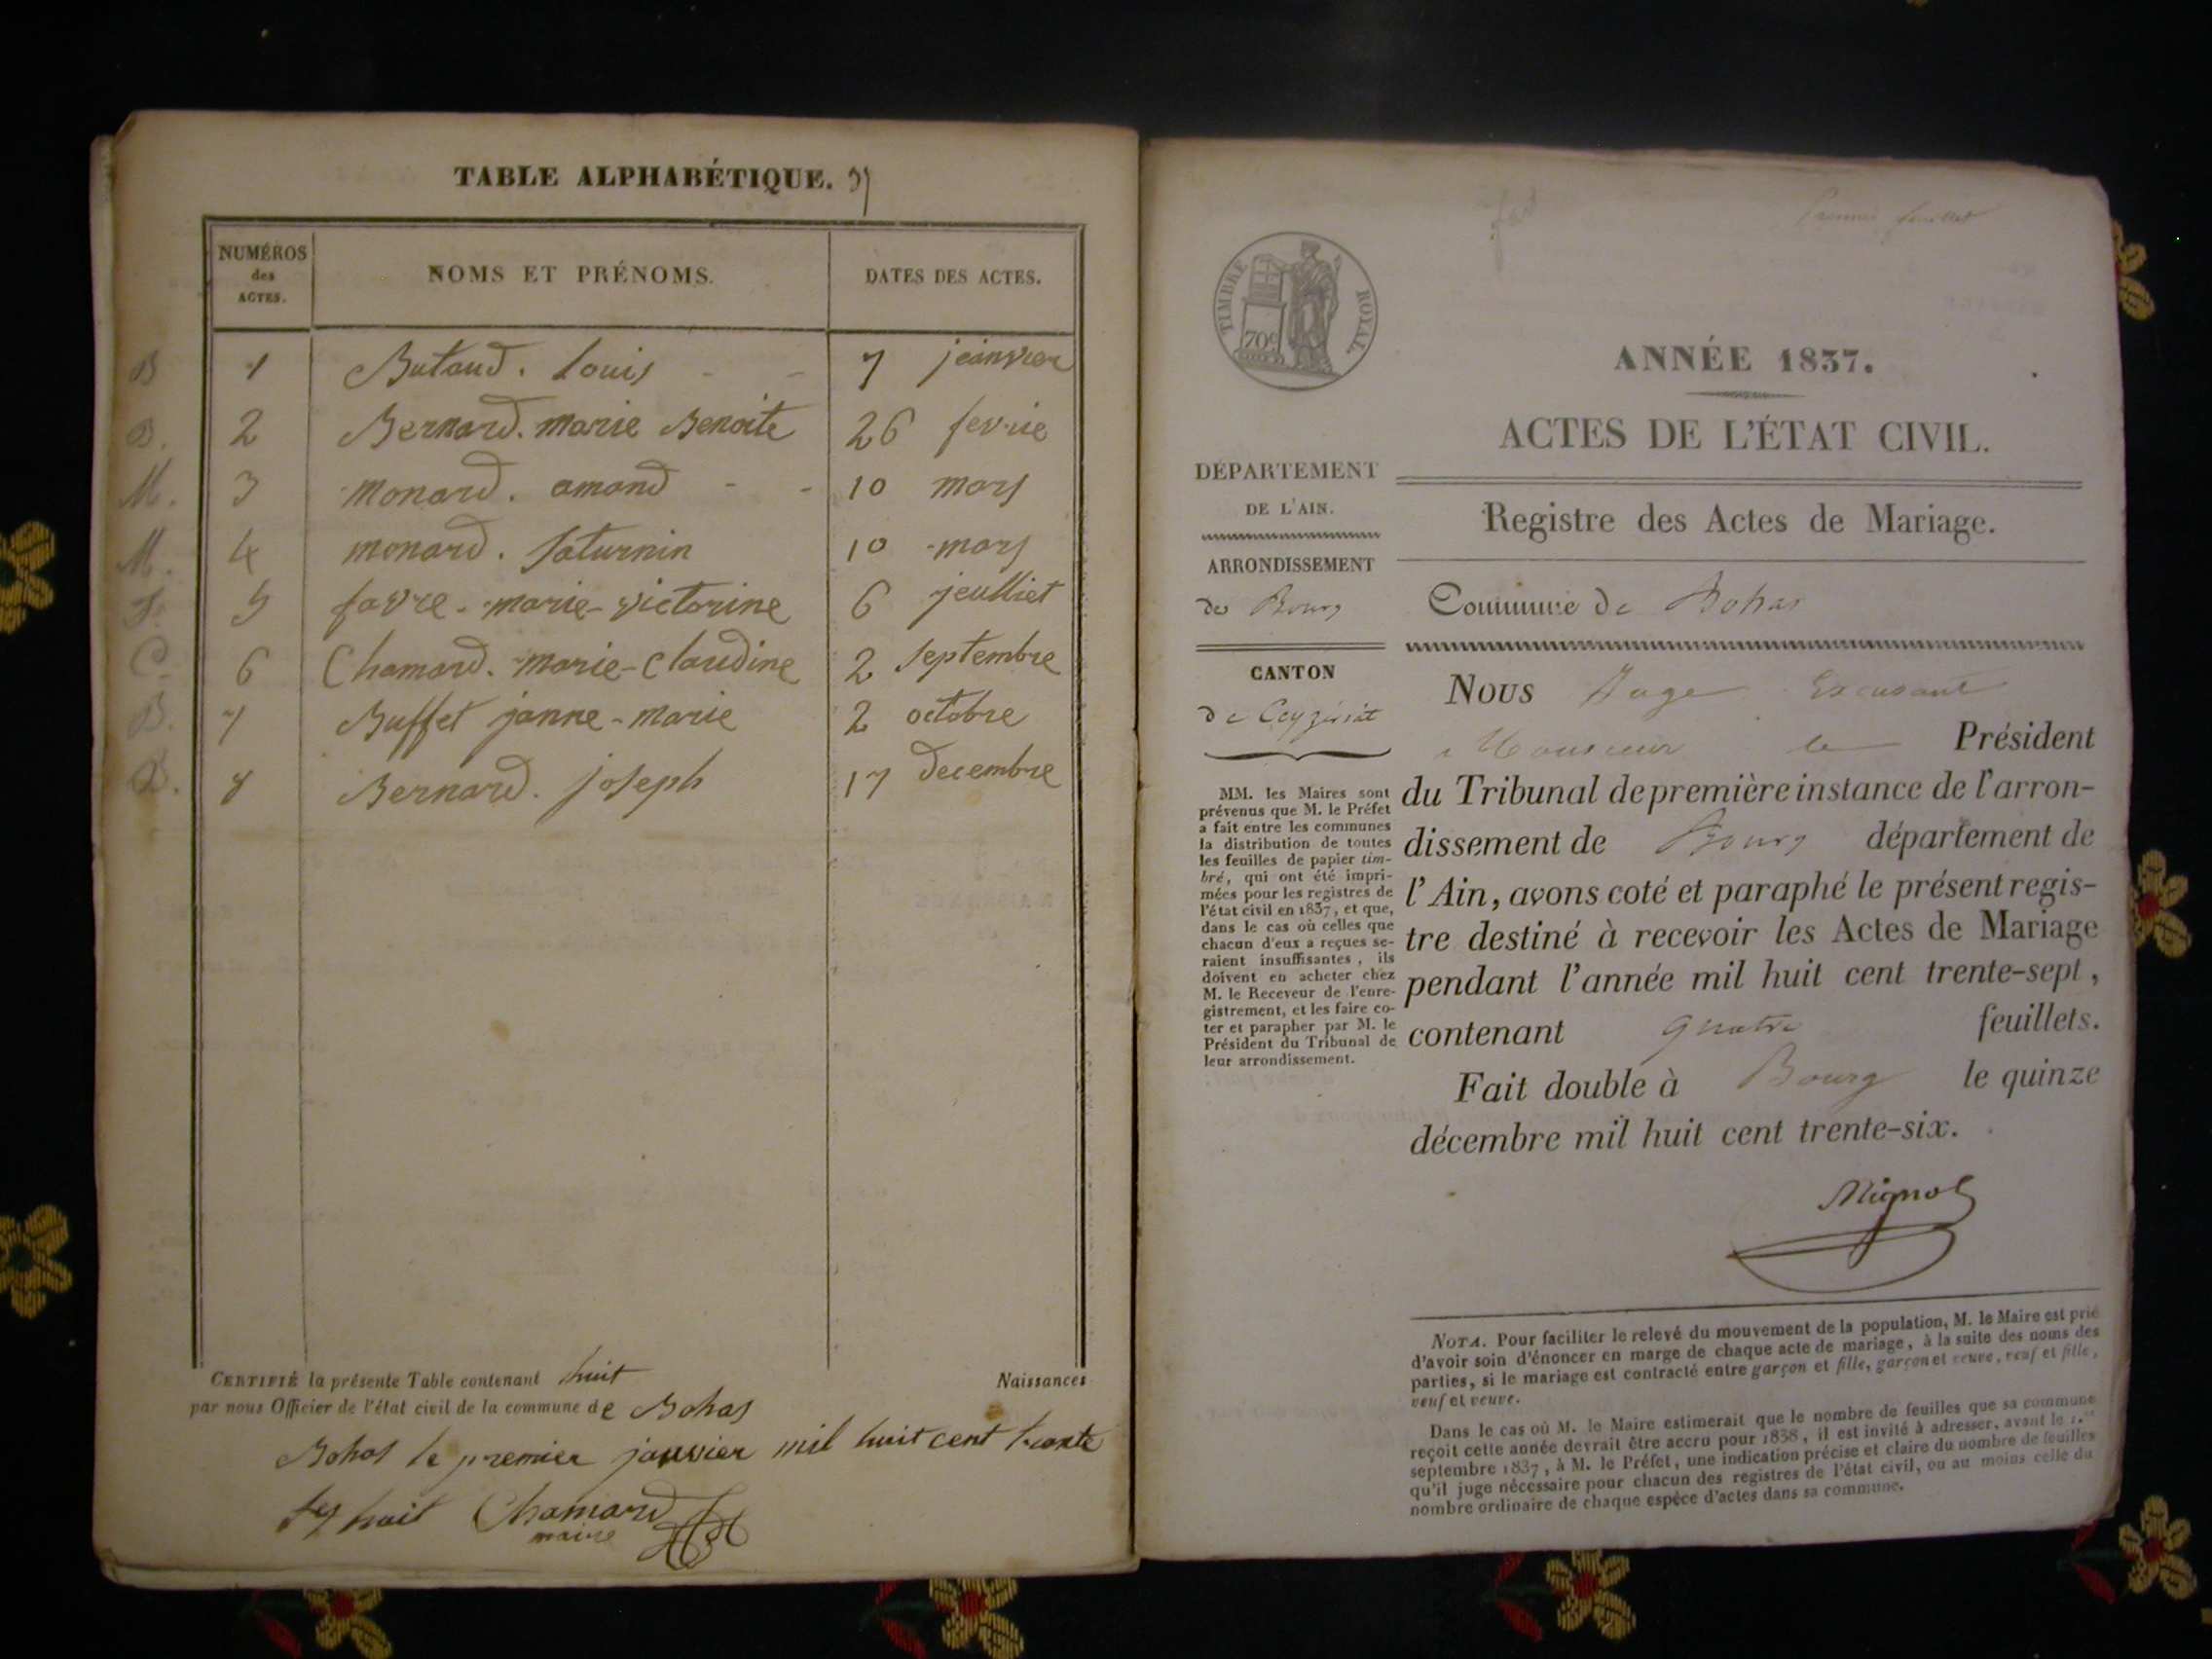 TABLE ALPHABÉTIQUE. 37
NUMÉROS
des
ACTES.
NOMS ET PRÉNOMS.
DATES DES ACTES.
B 1 Butaud. Louis - - 7 jeanvier
B. 2 Bernard. marie Benoite 26 fevrie
M. 3 monard. amand - - 10 mars
M. 4 monard. Saturnin 10 mars
F. 5 favre. marie-victorine 6 jeulliet
C. 6 Chamard. marie-claudine 2 Septembre
B. 7 Buffet janne-marie 2 octobre
B. 8 Bernard. joseph 17 decembre
CERTIFIÉ la présente Table contenant huit Naissances
par nous Officier de l'état civil de la commune de Bohas
Bohas le premier janvier mil huit cent trante
huit Chamard
maire
Premier feuillet
TIMBRE ROYAL.
70c
ANNÉE 1837.
ACTES DE L'ÉTAT CIVIL.
DÉPARTEMENT
DE L'AIN.
Registre des Actes de Mariage.
ARRONDISSEMENT
de Bourg
Commune de Bohas
CANTON
de Ceyzériat
Nous Juge
Monsieur le Président
du Tribunal de première instance de l'arron-
dissement de Bourg département de
l'Ain, avons coté et paraphé le présent regis-
tre destiné à recevoir les Actes de Mariage
pendant l'année mil huit cent trente-sept,
contenant quatre feuillets.
Fait double à Bourg le quinze
décembre mil huit cent trente-six.
Mignot
MM. les Maires sont
prévenus que M. le Préfet
a fait entre les communes
la distribution de toutes
les feuilles de papier tim-
bré, qui ont été impri-
mées pour les registres de
l'état civil en 1837, et que,
dans le cas où celles que
chacun d'eux a reçues se-
raient insuffisantes, ils
doivent en acheter chez
M. le Receveur de l'enre-
gistrement, et les faire co-
ter et parapher par M. le
Président du Tribunal de
leur arrondissement.
NOTA. Pour faciliter le relevé du mouvement de la population, M. le Maire est prié
d'avoir soin d'énoncer en marge de chaque acte de mariage, à la suite des noms des
parties, si le mariage est contracté entre garçon et fille, garçon et veuve, veuf et fille,
veuf et veuve.
Dans le cas où M. le Maire estimerait que le nombre de feuilles que sa commune
reçoit cette année devrait être accru pour 1838, il est invité à adresser, avant le 1.er
septembre 1837, à M. le Préfet, une indication précise et claire du nombre de feuilles
qu'il juge nécessaire pour chacun des registres de l'état civil, ou au moins celle du
nombre ordinaire de chaque espèce d'actes dans sa commune.